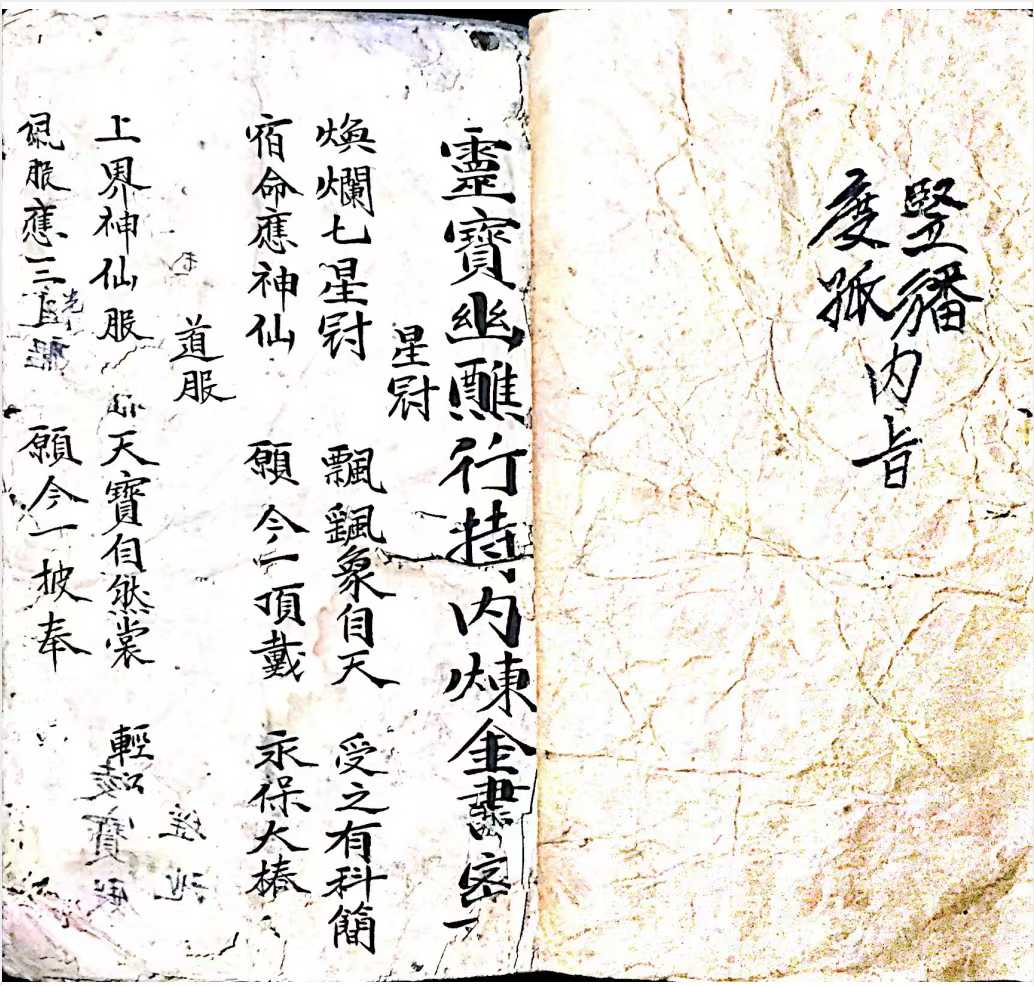 豎旛
度孤
内旨
靈寳幽醮行持内煉金書密
星冠
煥爛七星冠 飄飄象自天 受之有科簡
宿命應神仙 願今一頂戴 永保大椿
道服
上界神仙服 天寳自然裳 輕
服應三 願今一披奉